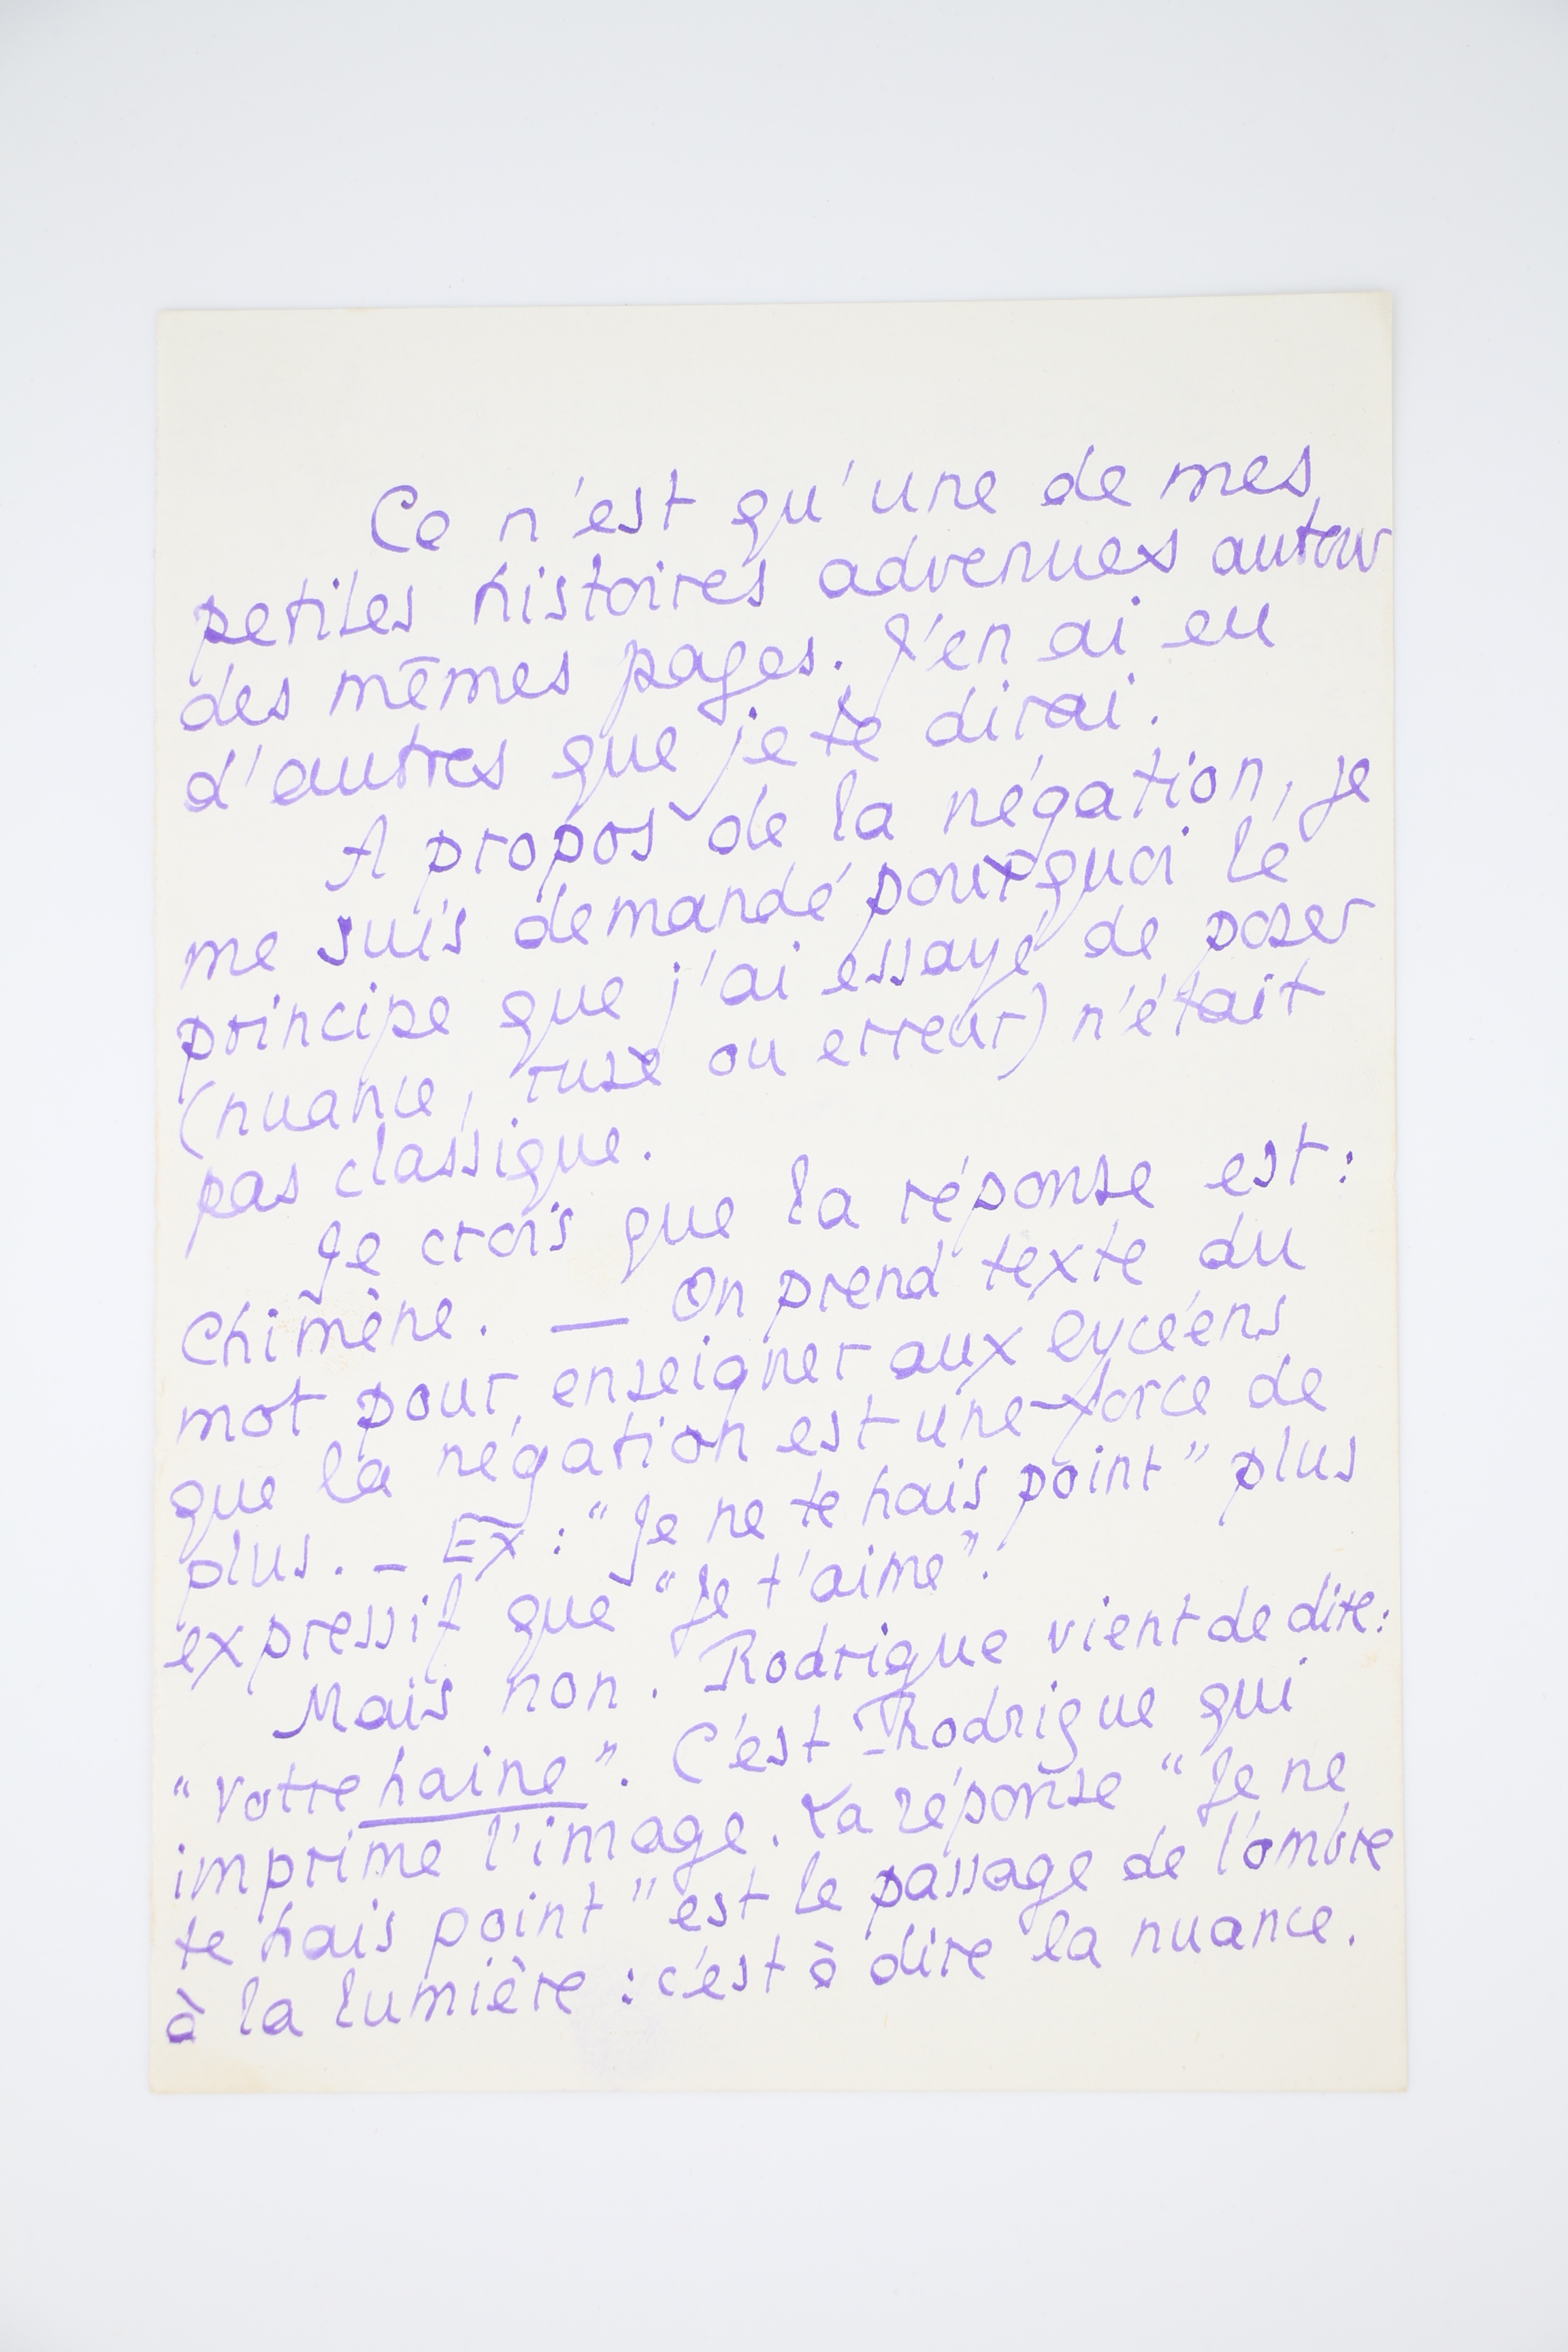 Ce n'est qu'une de mes
petites histoires advenues autour
des mêmes pages. J'en ai eu
d'autres que je te dirai.
A propos de la négation, je
me suis demandé pourquoi le
principe que j'ai essayé de poser
(nuance, ruse ou erreur) n'était
pas classique.
Je crois que la réponse est :
Chimène. — On prend texte du
mot pour enseigner aux lycéens
que la négation est une force de
plus. – Ex : "Je ne te hais point" plus
expressif que "Je t'aime".
Mais non. Rodrigue vient de dire :
"Votre haine". C'est Rodrigue qui
imprime l'image. La réponse "Je ne
te hais point" est le passage de l'ombre
à la lumière : c'est à dire la nuance.